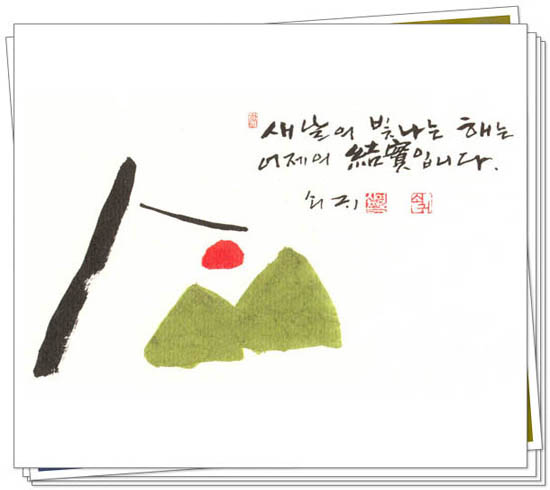 새날의 빛나는 해는
어제의 結實입니다.
쇠귀